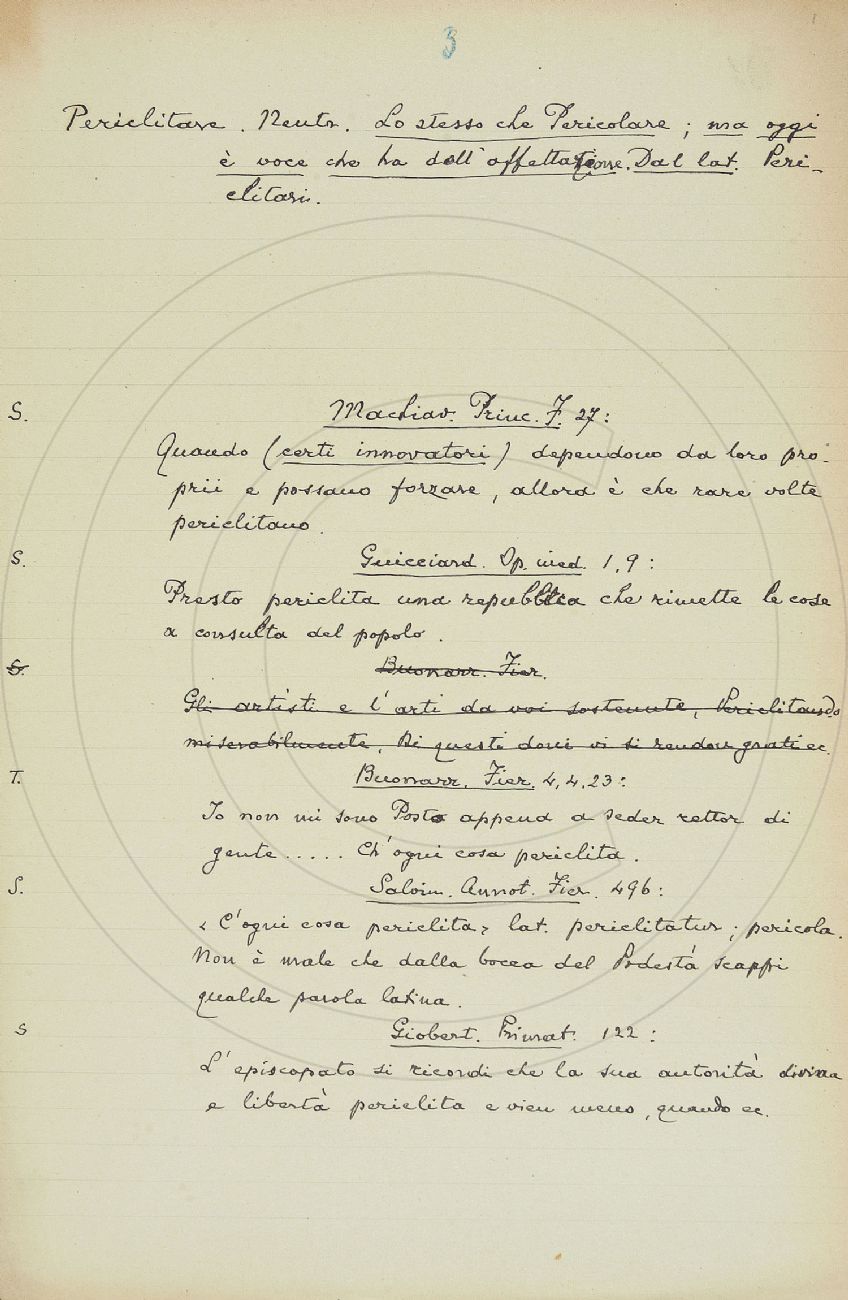 3
Periclitare. Neutr. Lo stesso che Pericolare; ma oggi
è voce che ha dell'affettazione. Dal lat. Peri-
clitari.
S. Machiav. Princ. F. 27:
Quando (certi innovatori) dependono da loro pro-
prii e possano forzare, allora è che rare volte
periclitano.
S. Guicciard. Op. ined. 1, 9:
Presto periclita una repubblica che rimette le cose
a consulta del popolo.
S. Buonarr. Fier.
Gli artisti e l'arti da voi sostenute, Periclitando
miserabilmente, Di questi doni vi si rendon grati ec.
T. Buonarr. Fier. 4, 4, 23:
Io non mi sono Posto append a seder rettor di
gente..... Ch'ogni cosa periclita.
S. Salvin. Annot. Fier. 496:
« C'ogni cosa periclita, lat. periclitatur; pericola.
Non è male che dalla bocca del Podestà scappi
qualche parola latina.
S Giobert. Primat. 122:
L'episcopato si ricordi che la sua autorità divina
e libertà periclita e vien meno, quando ec.